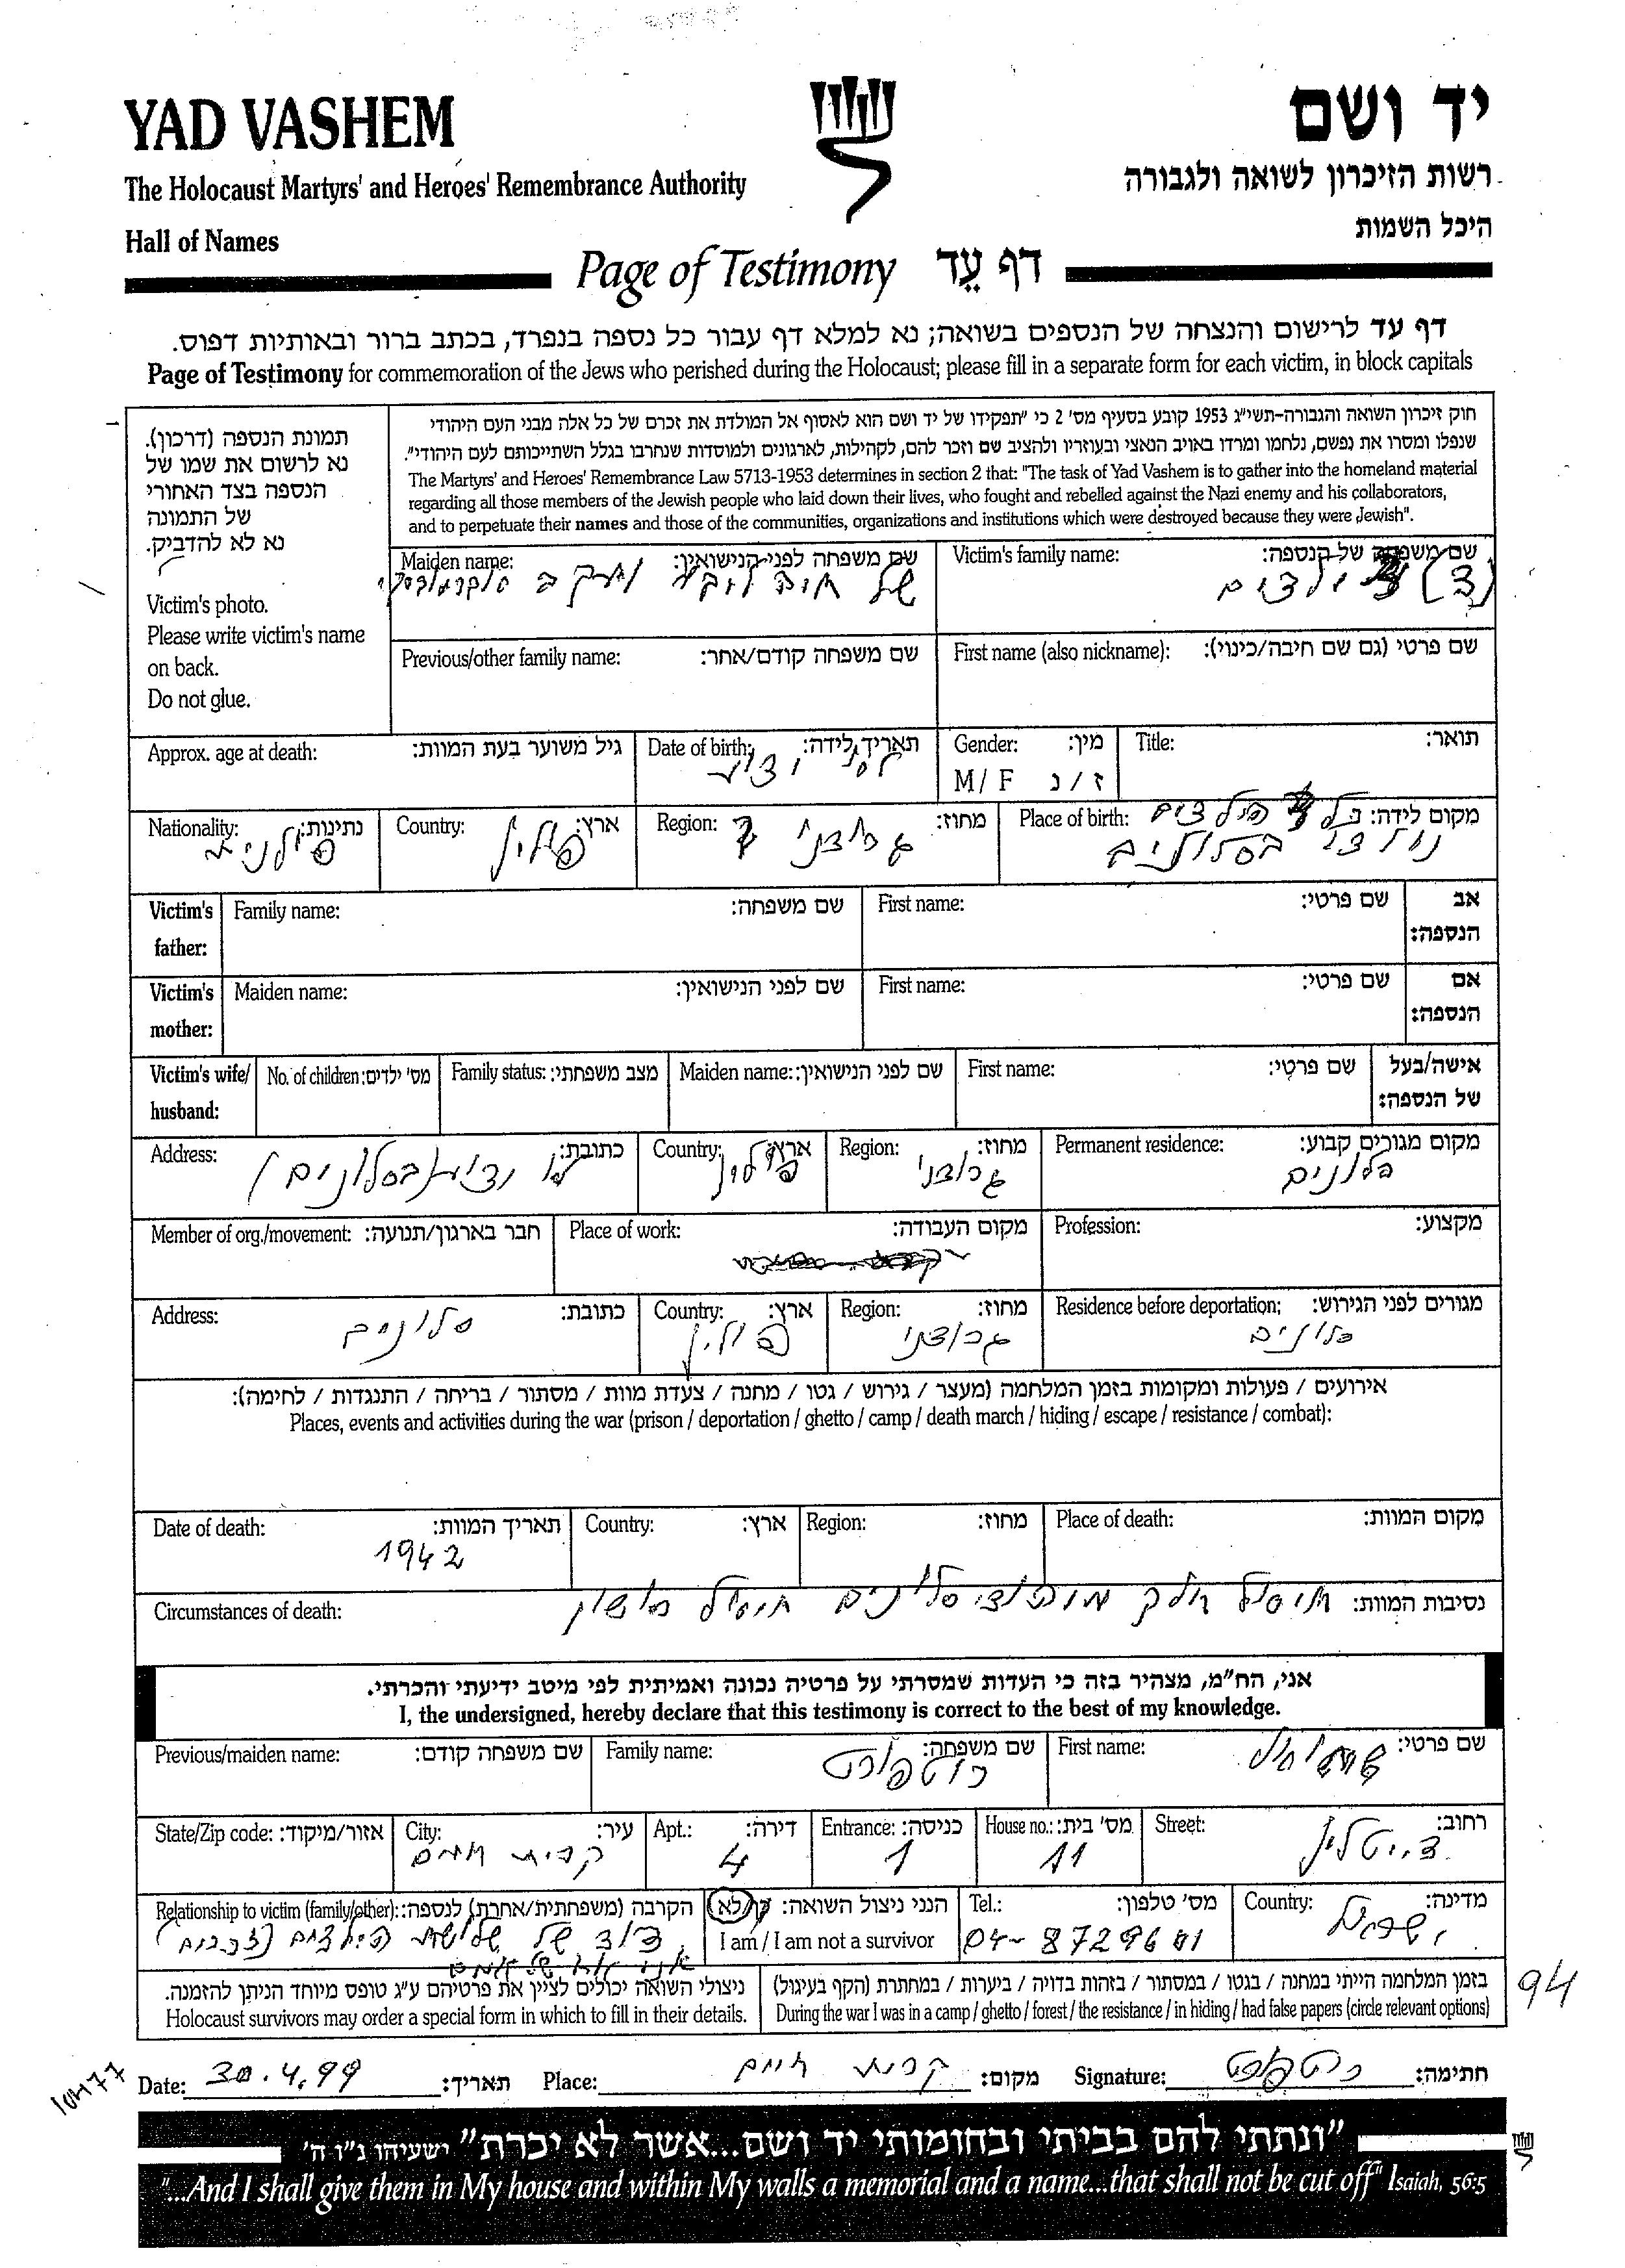 YAD VASHEM
יד ושם
The Holocaust Martyrs' and Heroes' Remembrance Authority
רשות הזיכרון לשואה ולגבורה
Hall of Names
היכל השמות
Page of Testimony דף עֵד
דף עד לרישום והנצחה של הנספים בשואה; נא למלא דף עבור כל נספה בנפרד, בכתב ברור ובאותיות דפוס.
Page of Testimony for commemoration of the Jews who perished during the Holocaust; please fill in a separate form for each victim, in block capitals
תמונת הנספה (דרכון).
נא לרשום את שמו של
הנספה בצד האחורי
של התמונה
נא לא להדביק.
Victim's photo.
Please write victim's name
on back.
Do not glue.
חוק זיכרון השואה והגבורה-תשי"ג 1953 קובע בסעיף מס' 2 כי "תפקידו של יד ושם הוא לאסוף אל המולדת את זכרם של כל אלה מבני העם היהודי
שנפלו ומסרו את נפשם, נלחמו ומרדו באויב הנאצי ובעוזריו ולהציב שם וזכר להם, לקהילות, לארגונים ולמוסדות שנחרבו בגלל השתייכותם לעם היהודי".
The Martyrs' and Heroes' Remembrance Law 5713-1953 determines in section 2 that: "The task of Yad Vashem is to gather into the homeland material
regarding all those members of the Jewish people who laid down their lives, who fought and rebelled against the Nazi enemy and his collaborators,
and to perpetuate their names and those of the communities, organizations and institutions which were destroyed because they were Jewish".
Victim's family name: שם משפחה של הנספה:
(3) ילדים
Maiden name: שם משפחה לפני הנישואין:
של חיה ליבה
First name (also nickname): שם פרטי (גם שם חיבה/כינוי):
Previous/other family name: שם משפחה קודם/אחר:
Title: תואר:
Gender: מין:
M / F ז / נ
Date of birth: תאריך לידה:
Approx. age at death: גיל משוער בעת המוות:
Place of birth: מקום לידה: כל הילדים
נולדו בסלונים
Region: מחוז:
גרודנו
Country: ארץ:
פולין
Nationality: נתינות:
פולנית
Victim's father: אב הנספה:
First name: שם פרטי:
Family name: שם משפחה:
Victim's mother: אם הנספה:
First name: שם פרטי:
Maiden name: שם לפני הנישואין:
Victim's wife/husband: אישה/בעל של הנספה:
First name: שם פרטי:
Maiden name: שם לפני הנישואין:
Family status: מצב משפחתי:
No. of children: מס' ילדים:
Permanent residence: מקום מגורים קבוע:
סלונים
Region: מחוז:
גרודנו
Country: ארץ:
פולין
Address: כתובת:
לא ידוע (בסלונים)
Profession: מקצוע:
Place of work: מקום העבודה:
Member of org./movement: חבר בארגון/תנועה:
Residence before deportation: מגורים לפני הגירוש:
סלונים
Region: מחוז:
גרודנו
Country: ארץ:
פולין
Address: כתובת:
סלונים
אירועים / פעולות ומקומות בזמן המלחמה (מעצר / גירוש / גטו / מחנה / צעדת מוות / מסתור / בריחה / התנגדות / לחימה):
Places, events and activities during the war (prison / deportation / ghetto / camp / death march / hiding / escape / resistance / combat):
Place of death: מקום המוות:
Region: מחוז:
Country: ארץ:
Date of death: תאריך המוות:
1942
Circumstances of death: נסיבות המוות: חיסול חלק מיהודי סלונים חיסול ראשון
אני, הח"מ, מצהיר בזה כי העדות שמסרתי על פרטיה נכונה ואמיתית לפי מיטב ידיעתי והכרתי.
I, the undersigned, hereby declare that this testimony is correct to the best of my knowledge.
First name: שם פרטי:
שמואל
Family name: שם משפחה:
רוטפורט
Previous/maiden name: שם משפחה קודם:
Street: רחוב:
צייטלין
House no.: מס' בית:
11
Entrance: כניסה:
1
Apt.: דירה:
4
City: עיר:
קרית חיים
State/Zip code: אזור/מיקוד:
Country: מדינה:
ישראל
Tel.: מס' טלפון:
04-8729601
הנני ניצול השואה: כן/לא
I am / I am not a survivor
Relationship to victim (family/other): הקרבה (משפחתית/אחרת) לנספה:
דוד של שלושת הילדים
בזמן המלחמה הייתי במחנה / בגטו / במסתור / בזהות בדויה / ביערות / במחתרת (הקף בעיגול)
During the war I was in a camp / ghetto / forest / the resistance / in hiding / had false papers (circle relevant options)
ניצולי השואה יכולים לציין את פרטיהם ע"ג טופס מיוחד הניתן להזמנה.
Holocaust survivors may order a special form in which to fill in their details.
94
Date: 30.4.99 תאריך: Place: קרית חיים מקום: Signature: רוטפורט חתימה:
10477
"ונתתי להם בביתי ובחומותי יד ושם...אשר לא יכרת" ישעיהו נ"ו ה'
"...And I shall give them in My house and within My walls a memorial and a name...that shall not be cut off" Isaiah, 56:5